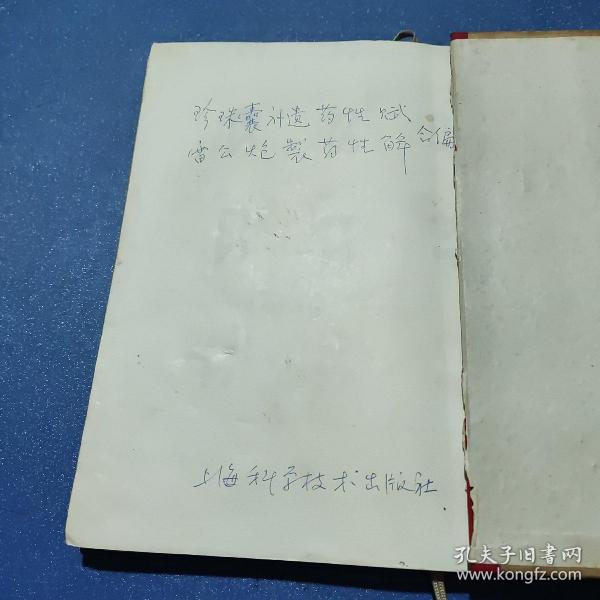 珍珠囊补遗药性赋
雷公炮製药性解 合编
上海科学技术出版社
孔夫子旧书网
www.kongfz.com